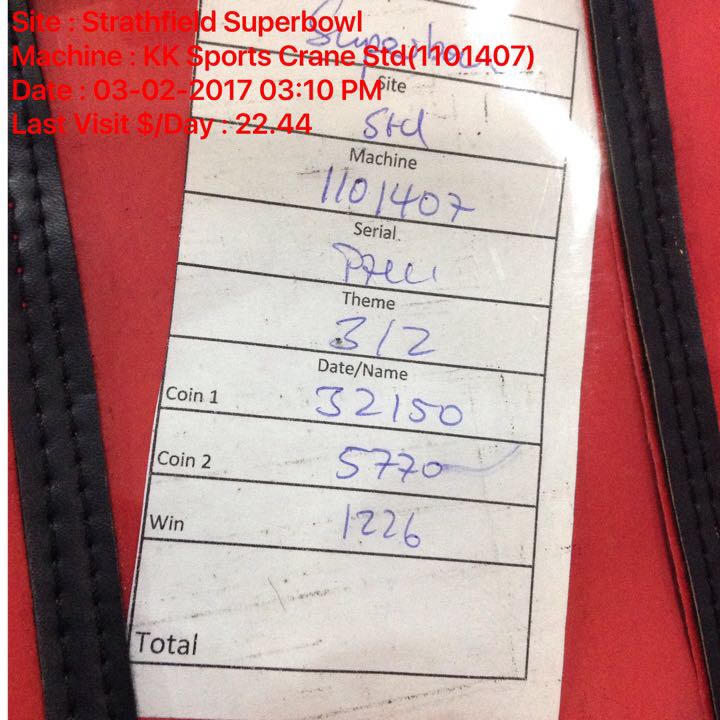 Site : Strathfield Superbowl
Machine : KK Sports Crane Std(1101407)
Date : 03-02-2017 03:10 PM
Last Visit $/Day : 22.44
Superbowl
Site
Std
Machine
1101407
Serial
Theme
3/2
Date/Name
Coin 1 32150
Coin 2 5770
Win 1226
Total